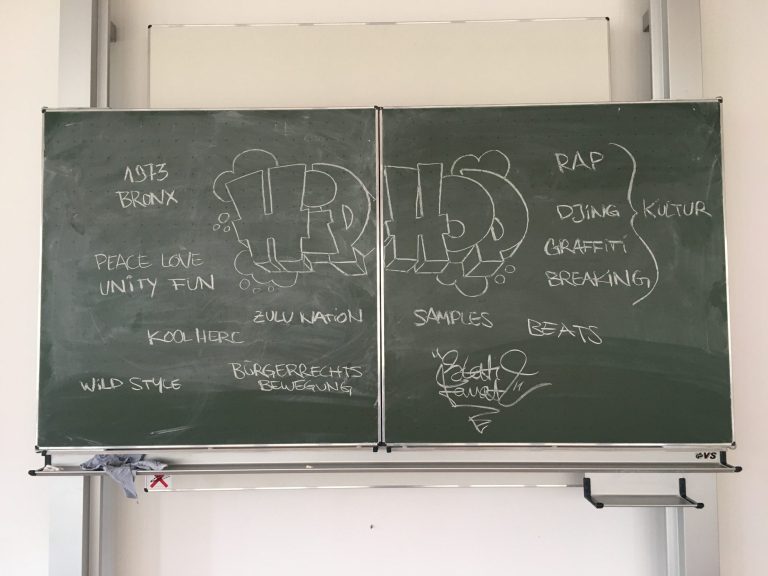 1973
BRONX
PEACE LOVE
UNITY FUN
ZULU NATION
KOOL HERC
WILD STYLE
BÜRGERRECHTS
BEWEGUNG
HIP HOP
RAP
DJING
GRAFFITI
BREAKING
KULTUR
SAMPLES
BEATS
VS